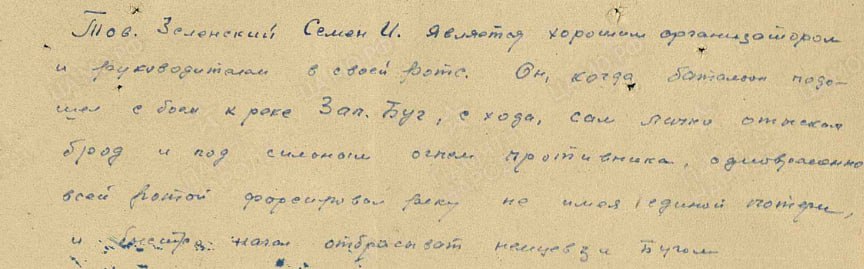 Тов. Зеленский Семен И. является хорошим организатором
и руководителем в своей роте. Он, когда, баталион подо-
шел с боем к реке Зап. Буг, с хода, сам лично отыскал
брод и под сильным огнем противника, одновременно
всей ротой форсировал реку не имея единой потери,
и быстро начал отбрасыват немцев за Бугом